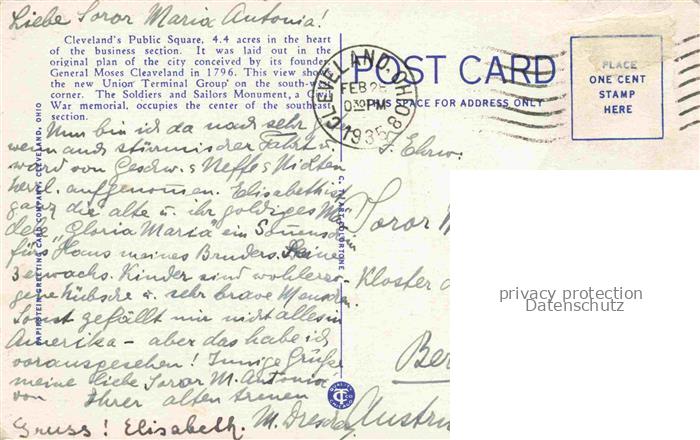 Liebe Soror Maria Antonia!
Cleveland's Public Square, 4.4 acres in the heart
of the business section. It was laid out in the
original plan of the city conceived by its founder
General Moses Cleaveland in 1796. This view shows
the new Union Terminal Group on the south-west
corner. The Soldiers and Sailors Monument, a Civil
War memorial, occupies the center of the southeast
section.
POST CARD
THIS SPACE FOR ADDRESS ONLY
CLEVELAND, OHIO
FEB 26
1030 PM
1935
PLACE
ONE CENT
STAMP
HERE
PAPIRSTEIN GREETING CARD COMPANY, CLEVELAND, OHIO
C. T. ART-COLORTONE
Nun bin ich da nach sehr
wenn auch stürmischer Fahrt u.
ward von Geschw. s Neffes Nichten
herzl. aufgenommen. Elisabeth ist
ganz die alte u. ihr goldiges
"Gloria Maria" ein
fürs Haus meines Bruders. Seine
3 erwachs. Kinder sind wohlerzo-
gene hübsche u. sehr brave Menschen.
Sonst gefällt mir nicht alles in
Amerika - aber das habe ich
vorausgesehen! Innige Grüße
meine liebe Soror M. Antonia
von Ihrer alten treuen
M. Dresda
Gruss! Elisabeth.
J. Ehrw.
Soror M
Kloster
Ber
Austri
privacy protection
Datenschutz